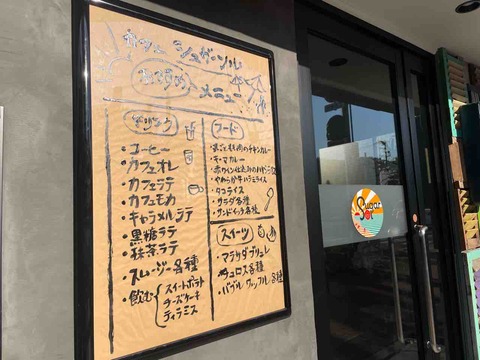 カフェ シュガーソル
おすすめ
メニュー
ドリンク
・コーヒー
・カフェオレ
・カフェラテ
・カフェモカ
・キャラメルラテ
・黒糖ラテ
・抹茶ラテ
・スムージー各種
・飲む
スイートポテト
チーズケーキ
ティラミス
フード
・丸ごともも肉のチキンカレー
・キーマカレー
・赤ワイン仕込みの
・やわらか牛ハラミライス
・タコライス
・サラダ各種
・サンドイッチ各種
スイーツ
・マラサダブリュレ
・チュロス各種
・バブルワッフル各種
Sugar
Sol